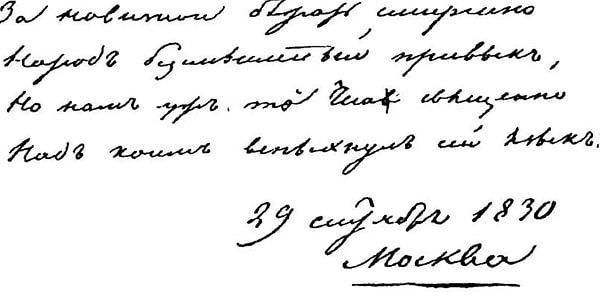 За новизной бѣжать смиренно
Народъ безмысленный привыкъ,
Но намъ ужъ то Чело священно
Надъ коимъ вспыхнулъ сей языкъ.
29 сентября 1830
Москва